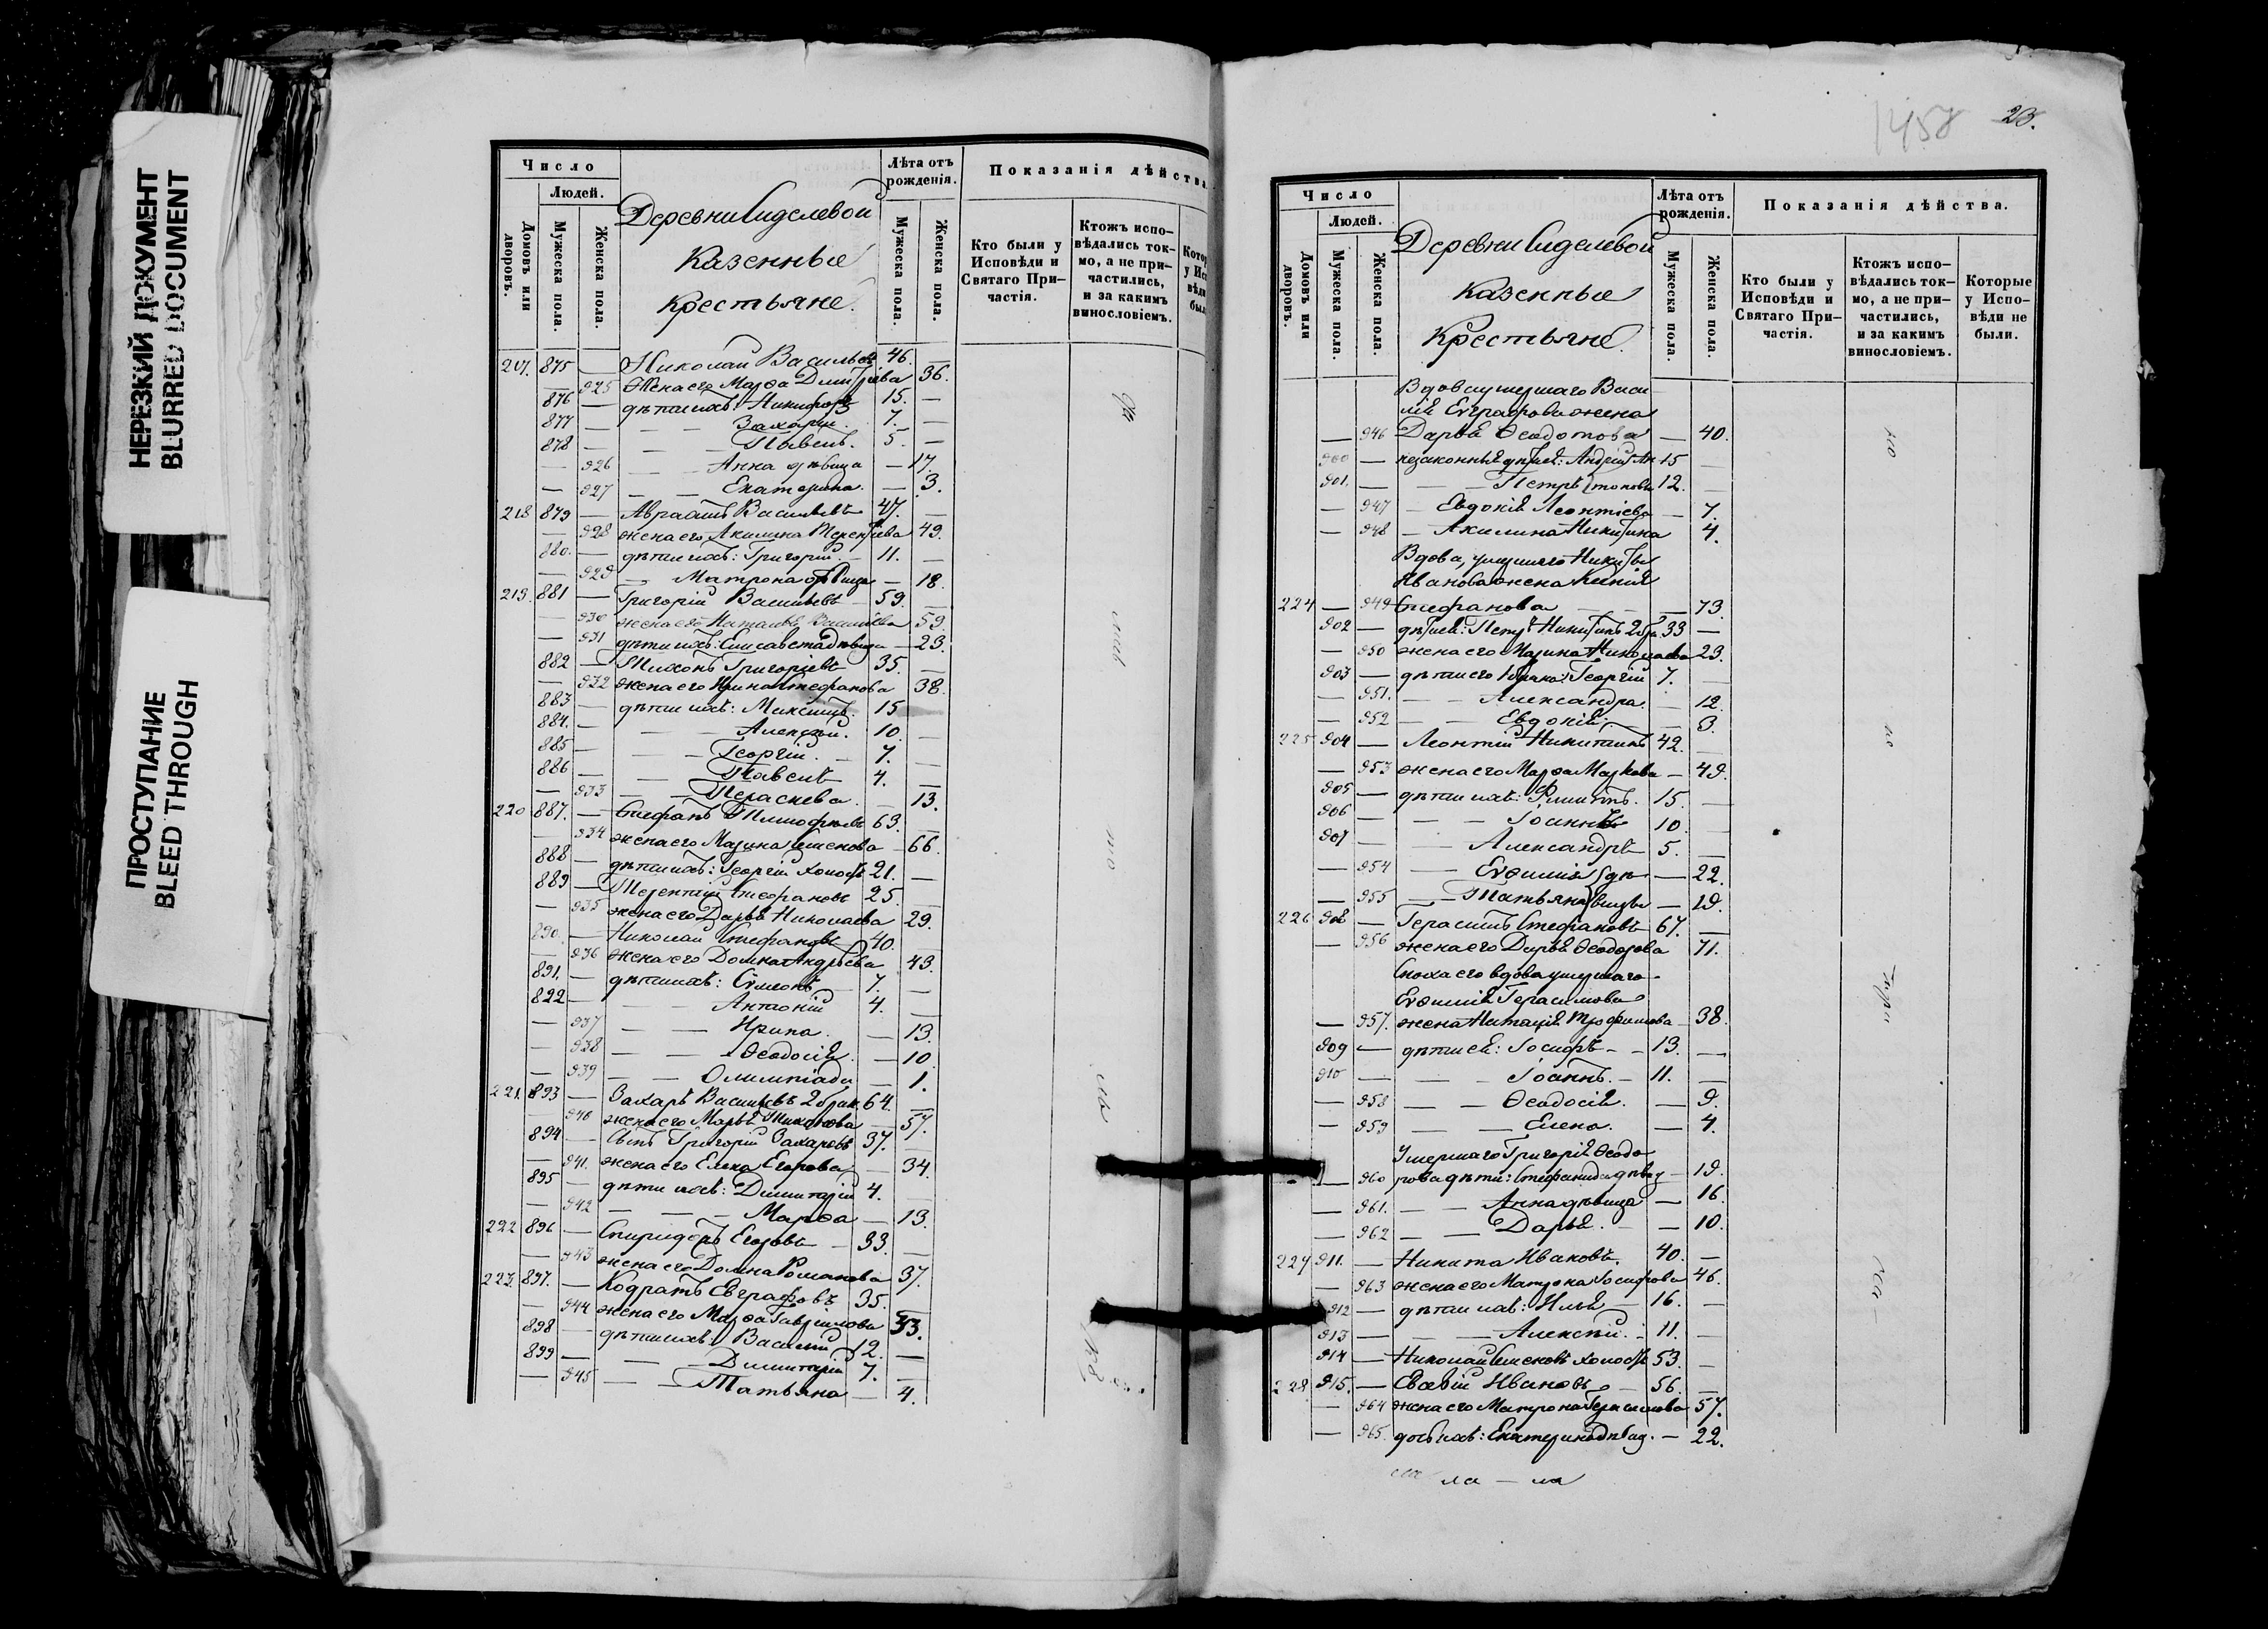 НЕРЕЗКИЙ ДОКУМЕНТ
BLURRED DOCUMENT
ПРОСТУПАНИЕ
BLEED THROUGH
Число
Людей.
Домовъ или дворовъ.
Мужеска пола.
Женска пола.
Деревни Сиделевой
Казенные
Крестьяне.
Лѣта отъ рожденія.
Мужеска пола.
Женска пола.
Показанія дѣйства.
Кто были у Исповѣди и Святаго Причастія.
Ктожъ исповѣдались токмо, а не причастились, и за какимъ винословіемъ.
217. 875 — Николай Васильевъ 46. —
— 925 Жена его Марѳа Димитріева 36.
876 — дѣти ихъ: Никифоръ 15. —
877 — — — Захарій. 7. —
878 — — — Павелъ. 5. —
— 926 — — Анна дѣвица — 17.
— 927 — — Екатерина. — 3.
218 879 — Авраамъ Васильевъ 47. —
— 928 жена его Акилина Терентіева 49.
880. — дѣти ихъ: Григорій. — 11. —
— 929 — Матрона дѣвица — 18.
219. 881 — Григорій Васильевъ 59. —
— 930 жена его Наталья Васильева 59.
— 931 дѣти ихъ: Елисавета дѣвица — 23.
882 — Тихонъ Григорьевъ 35. —
— 932 жена его Ирина Стефанова 38.
883 — дѣти ихъ: Максимъ. 15
884. — — — Алексѣй. 10. —
885 — — — Георгій. — 7. —
886 — — Павелъ 4. —
— 933 — — Параскева. — 13.
220 887. — Стефанъ Тимофѣевъ 63. —
— 934 жена его Марина Семенова — 66.
888 — дѣти ихъ: Георгій холостъ 21. —
889 — Терентій Стефановъ 25. —
— 935 жена его Дарья Николаева 29.
890. — Николай Стефановъ 40. —
— 936 жена его Домна Андреева 43.
891. — дѣти ихъ: Сумеонъ 7. —
822 — — — Антоній 4. —
— 937 — — Ирина. — 13.
— 938 — — Ѳеодосія. — 10.
— 939 — — Олимпіада — 1.
221. 893 — Захаръ Васильевъ 2 брак. 64. —
— 940 жена его Марья Тихонова — 57.
894 — Сынъ Григорій Захаровъ 37. —
— 941. жена его Елена Егорова — 34.
895 — дѣти ихъ: Димитрій 4. —
— 942 — — — Марѳа — 13.
222 896 — Спиридонъ Егоровъ — 33. —
— 943 жена его Домна Романова 37.
223. 897. — Кодратъ Евграфовъ 35. —
— 944 жена его Марѳа Гаврилова 33.
898 — дѣти ихъ: Василій 12. —
899 — — — Димитрій 7. —
— 945 — — Татьяна — 4.
1458 23.
Число
Людей.
Домовъ или дворовъ.
Мужеска пола.
Женска пола.
Деревни Сиделевой
Казенные
Крестьяне.
Лѣта отъ рожденія.
Мужеска пола.
Женска пола.
Показанія дѣйства.
Кто были у Исповѣди и Святаго Причастія.
Ктожъ исповѣдались токмо, а не причастились, и за какимъ винословіемъ.
Которые у Исповѣди не были.
Вдова умершаго Васи
лія Евграфова жена
— 946 Дарья Ѳеодотова — 40.
900 — незаконныя дѣти ея: Андрей Ан 15 —
901. — — — Петръ тоновы 12. —
— 947 — Евдокія Леонтіева — 7.
— 948 — Акилина Никитина 4.
Вдова, умершаго Никиты
Иванова жена Ксенія
224 — 949 Стефанова — — 73.
902 — дѣти ея: Петръ Никитинъ 2 бр. 33 —
— 950 жена его Марина Николаева 29.
903 — дѣти его 1 брака: Георгій 7. —
— 951. — — Александра. — 12.
— 952 — — Евдокія. — 3.
225 904 — Леонтій Никитинъ 42. —
— 953 жена его Марѳа Маркова — 49.
905 — дѣти ихъ: Филиппъ. 15. —
906 — — — Іоаннъ 10. —
907 — — Александръ 5. —
— 954 — Евѳимія дѣ — 22.
— 955 — Татьяна вицы — 19.
226 908 — Герасимъ Стефановъ 67. —
— 956 жена его Дарья Ѳеодорова 71.
Сноха его вдова умершаго
Евѳимія Герасимова
— 957. жена Наталія Трофимова — 38.
909 — дѣти ея: Іосифъ — — 13. —
910 — — — Іоаннъ. — 11. —
— 958 — — Ѳеодосія. — 9.
— 959 — — Елена. — 4.
Умершаго Григорія Ѳеодо
— 960 рова дѣти: Стефанида дѣвиц — 19.
— 961. — — Анна дѣвица — 16.
— 962 — — Дарья. — — 10.
227 911. — Никита Ивановъ. 40. —
— 963 жена его Матрона Іосифова 46.
912 — дѣти ихъ: Илья — 16. —
913 — — — Алексѣй. — 11. —
914 — Николай Семеновъ холостъ 53. —
228 915. — Евсевій Ивановъ — 56. —
— 964 жена его Матрона Герасимова 57.
— 965. дочь ихъ: Екатерина дѣвиц. — 22.